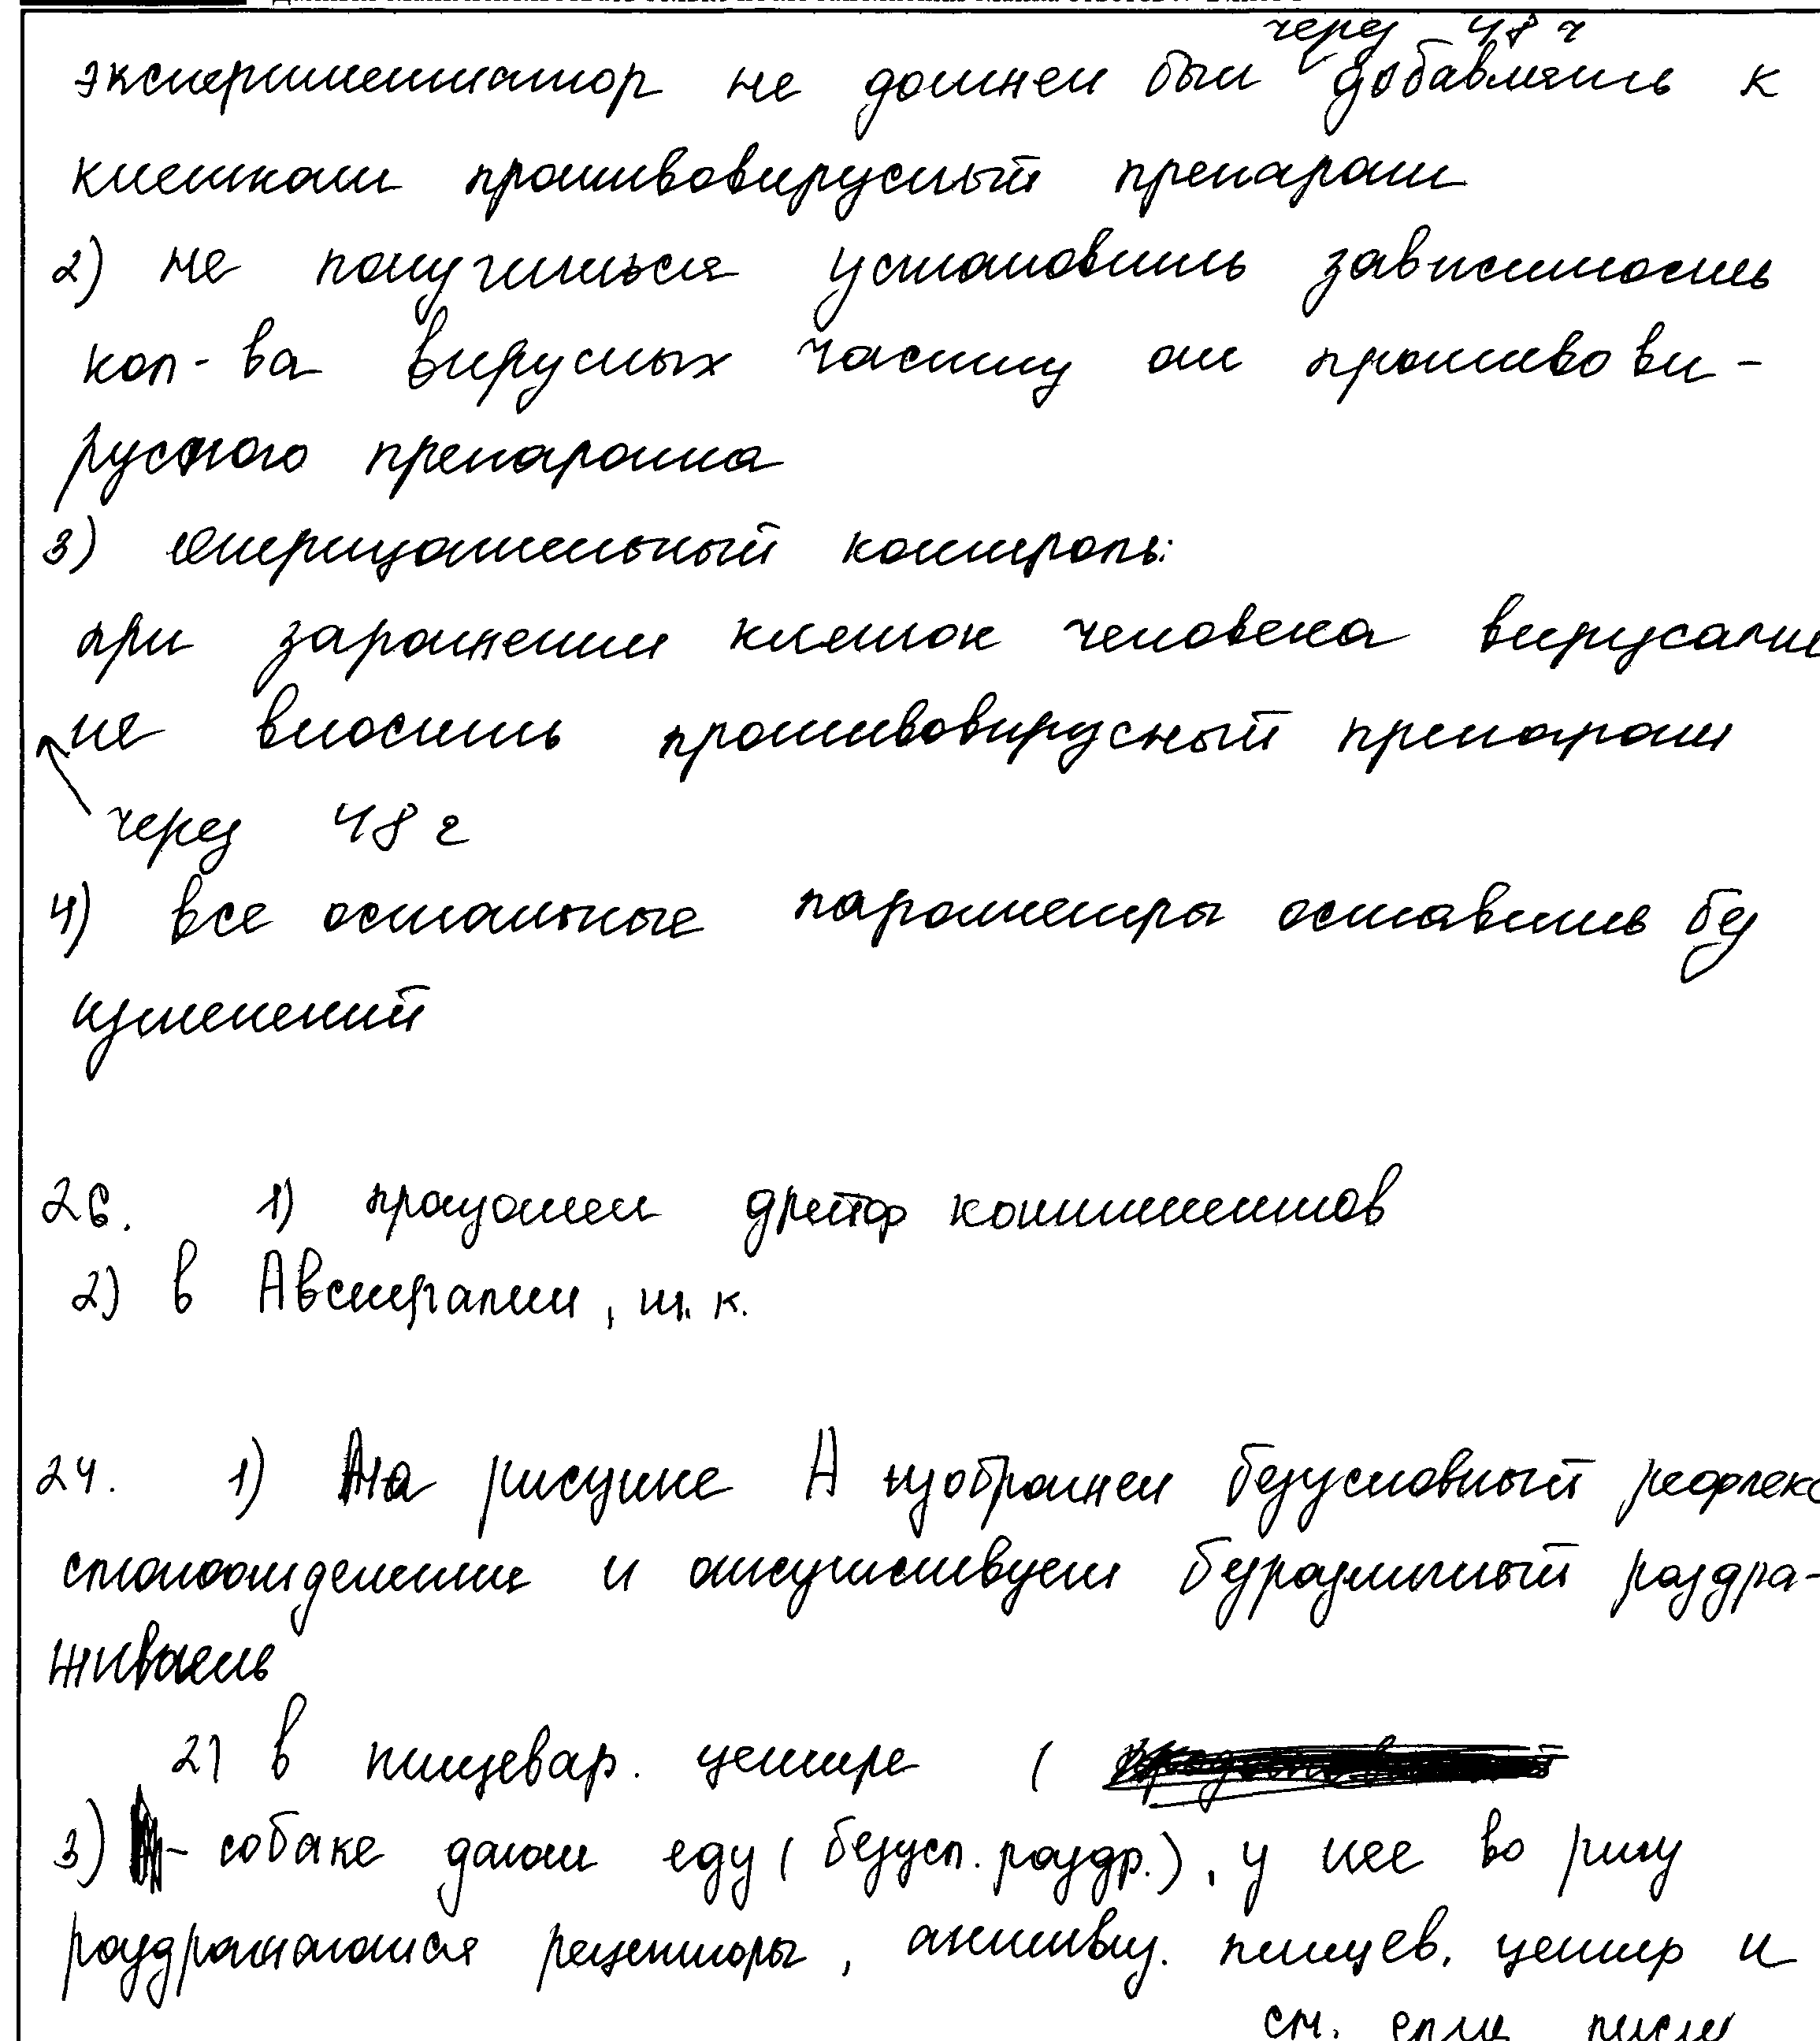 через 48 ч
экспериментатор не должен был добавлять к
клеткам противовирусный препарат
2) не получиться установить зависимость
кол-ва вирусных частиц от противови-
русного препарата
3) Отрицательный контроль:
при заражении клеток человека вирусами
не вносить противовирусный препарат
через 48 г
4) все остальные параметры оставить без
изменений
26. 1) процомен дрейф континентов
2) в Австралии, т.к.
24. 1) На рисунке А изображен безусловный рефлекс
слюноотделение и отсутствует безразличный раздра-
житель
2) в пищевар. центре (
3) - собаке дают еду (безусл. раздр.), у нее во рту
раздражаются рецепторы, активиз. пищев. центр и
см. след